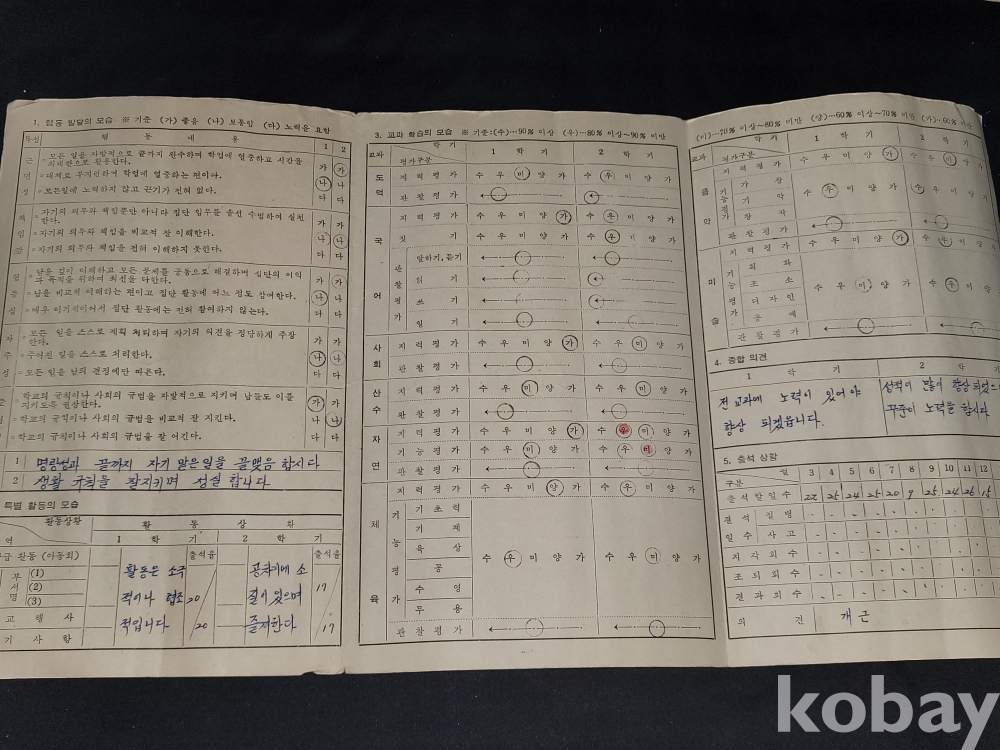 1. 행동 발달의 모습 ※ 기준 (가) 좋음 (나) 보통임 (다) 노력을 요함
특성 행 동 내 용 1 2
근면성
=모든 일을 자발적으로 끝까지 완수하며 학업에 열중하고 시간을 최대한으로 활용한다. 가 가
=대체로 부지런하며 학업에 열중하는 편이다. 나 나
=모든일에 노력하지 않고 끈기가 전혀 없다. 다 다
책임감
=자기의 의무와 책임뿐만 아니라 집단 임무를 솔선 수범하여 실천한다. 가 가
=자기의 의무와 책임을 비교적 잘 이해한다. 나 나
=자기의 의무와 책임을 전혀 이해하지 못한다. 다 다
협동심
=남을 깊이 이해하고 모든 문제를 공동으로 해결하며 집단의 이익과 목적을 위하여 최선을 다한다. 가 가
=남을 비교적 이해하는 편이고 집단 활동에 어느 정도 참여한다. 나 나
=매우 이기적이어서 집단 활동에는 전혀 참여하지 않는다. 다 다
자주성
모든 일을 스스로 계획 처리하며 자기의 의견을 정당하게 주장한다. 가 가
=주어진 일을 스스로 처리한다. 나 나
=모든 일을 남의 결정에만 따른다. 다 다
=학교의 규칙이나 사회의 규범을 자발적으로 지키며 남들도 이를 지키도록 권장한다. 가 가
=학교의 규칙이나 사회의 규범을 비교적 잘 지킨다. 나 나
학교의 규칙이나 사회의 규범을 잘 어긴다. 다 다
1 명랑성과 끝까지 자기 맡은일을 끝맺음 합시다
2 생활 규칙을 잘지키며 성실 합니다
특별 활동의 모습
활동상황 활 동 상 황
역 1 학 기 출석율 2 학 기 출석율
급 활동 (아동회)
부서명 (1) (2) (3)
교 행 사
기 사 항
활동은 소극적이나 협조적입니다 20/20
소질이 있으며 즐겨한다 17/17
3. 교과 학습의 모습 ※ 기준:(수)…90% 이상 (우)…80% 이상~90% 미만
학기 1 학 기 2 학 기
교과 평가구분
도덕 지 력 평 가 수 우 미 양 가 수 우 미 양 가
관 찰 평 가
국어 지 력 평 가 수 우 미 양 가 수 우 미 양 가
짓 기 수 우 미 양 가 수 우 미 양 가
관찰평가 말하기,듣기
읽 기
쓰 기
사회 지 력 평 가 수 우 미 양 가 수 우 미 양 가
관 찰 평 가
산수 지 력 평 가 수 우 미 양 가 수 우 미 양 가
관 찰 평 가
자연 지 력 평 가 수 우 미 양 가 수 우 미 양 가
기 능 평 가 수 우 미 양 가 수 우 미 양 가
관 찰 평 가
체육 지 력 평 가 수 우 미 양 가 수 우 미 양 가
기능평가 기 초 력
기 계
육 상
공
수 영
무 용
수 우 미 양 가 수 우 미 양 가
관 찰 평 가
(미)…70% 이상~80% 미만 (양)…60% 이상~70% 미만 (가)…60% 미만
교과 평가구분 1 학 기 2 학
음악 지 력 평 가 수 우 미 양 가 수 우 미 양
기능평가 가 창
기 악
창 작
수 우 미 양 가 수 우 미 양
관 찰 평 가
미술 지 력 평 가 수 우 미 양 가 수 우 미 양
기능평가 회 화
조 소
디 자 인
공 예
수 우 미 양 가 수 우 미 양
관 찰 평 가
4. 종합 의견
1 학 기 2 학 기
전 교과에 노력이 있어야 향상 되겠읍니다.
성적이 많이 향상 되었으니 꾸준이 노력을 합시다
5. 출석 상황
구분 월 3 4 5 6 7 8 9 10 11 12
출 석 할 일 수 22 25 24 25 20 9 25 24 26 15
결석일수 질 병
사 고
지 각 회 수
조 퇴 회 수
결 과 회 수
의 견 개근
kobay